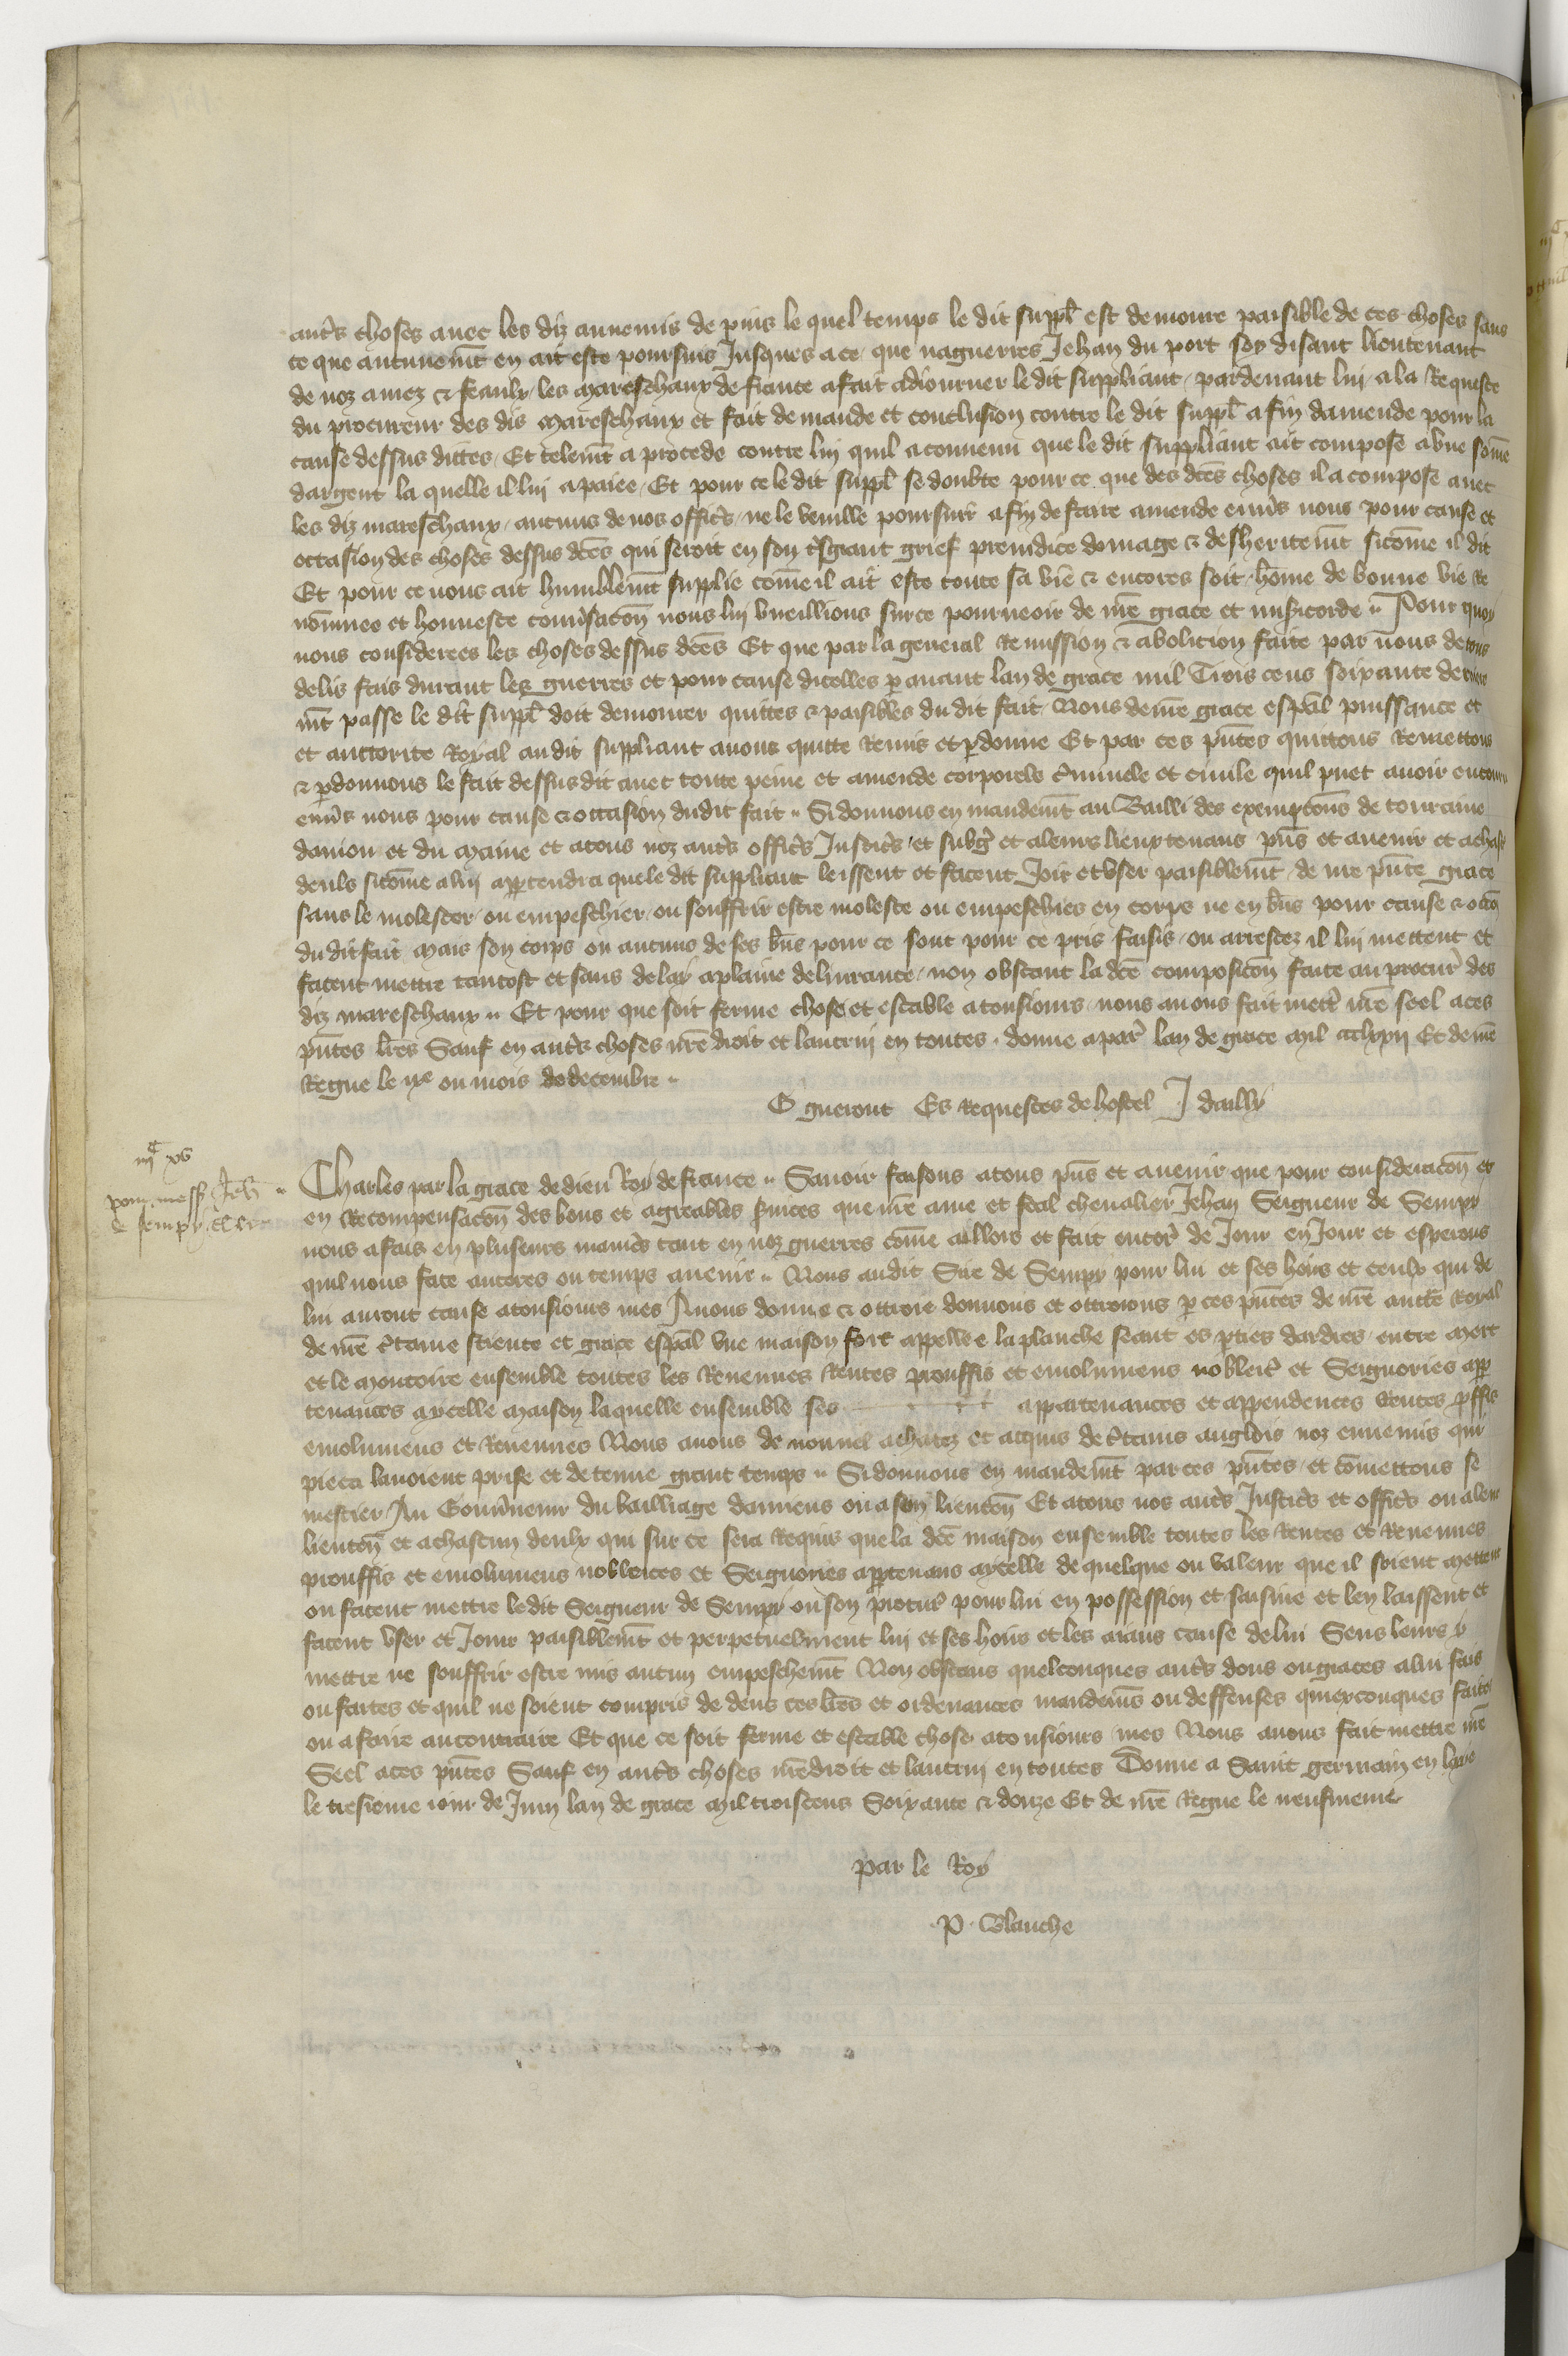 autrs choses avec les diz annemis de puis le quel temps le dit suppl est demoure paisible de ces choses sans
ce que aucunemt en ait este poursuis Jusques a ce que naguerres Jehan du port soy disant lieutenant
de noz amez & feaulx les mareschaux de france a fait adiourner le dit suppliant pardevant lui a la Requeste
du procureur des dis mareschaux et fait demande et conclusion contre le dit suppl a fin damende pour la
cause dessus dittes Et telemt a procede contre luy quil a convenu que le dit suppliant ait compose a une some
dargent la quelle il lui a paiee Et pour ce le dit suppl se doubte pour ce que des dces choses il a compose avec
les diz mareschaux aucuns de nos officrs ne le veuille poursuir a fin de faire amende envrs nous pour cause et
occasion des choses dessus dces qui seroit en son trsgrant grief preiudice domage & desheritemt sicome il dit
Et pour ce nous ait humblemt supplie come il ait este toute sa vie & encores soit home de bonne vie Re
nommee et honneste conversacon nous lui vueillions surce pourveoir de nre grace et misricorde Pour quoy
nous considerees les choses dessus dces Et que par la general Remission & abolicion faite par nous de tous
delis fais durant les guerres et pour cause dicelles pavant lan de grace mil Trois cens soixante
mt passe le dit suppl doit demourer quittes & paisibles du dit fait Nous de nre grace espal puissance et
et auctorite Royal au dit suppliant avons quitte Remis et pdonne Et par ces pntes quittons Remettons
& pdonnons le fait dessusdit avec toute peine et amende corporele crminele et civile quil puet avoir encouru
envrs nous pour cause & occasion dudit fait Si donnons en mandemt au Bailli des exempcons de touraine
daniou et du Maine et a tous noz autrs officrs Justicrs et subgr et a leurs lieuxtenans pns et avenir et a chasc
deuls sicome a lui appartendra que le dit suppliant leissent et facent Joir et user paisiblemt de nre pnte grace
sans le molester ou empeschier ou souffrir estre moleste ou empeschies en corps ne en bns pour cause & occon
du dit fait Mais son corps ou aucuns de ses bns pour ce sont pour ce pris saisis ou arrestez il lui mettent et
facent mettre tantost et sans delay a plaine delivrance non obstant la dce composicon faite au procur des
diz mareschaux Et pour que soit ferme chose et estable a tousiours nous avons fait mettr nre seel a ces
pntes lres Sauf en autrs choses nre droit et lautrui en toutes donne a par lan de grace Mil ccclxxii Et de nre
Regne le ixe ou mois de decembre
G gueront Es Requestes de lostel J dailly
iiijc xv
pour messr Jeh
de sempy cher
Charles par la grace de dieu Roy de france Savoir faisons a tous pns et avenir que pour consideracon et
en Recompensacon des bons et agreables svices que nre ame et feal chevalier Jehan Seigneur de Sempy
nous a fais en pluseurs manirs tant en noz guerres come aillors et fait encor de Jour en Jour et esperons
quil nous face ancores ou temps avenir Nous audit Sire de Sempy pour lui et ses hoirs et ceulx qui de
lui auront cause a tousiours mes Avons donne & ottroie donnons et ottroions p ces pntes de nre auctte Royal
de nre crtaine science et grace espal une maison fort appellee la planche seant es pties dardres entre Merc
et le Montoire ensemble toutes les Revenues Rentes prouffis et emolumens nobleces et Seignories app
tenances aycelle Maison laquelle ensemble ses appartenances et appendences Rentes pffis
emolumens et Revenues Nous avons de nouvel achatez et acquis de crtains anglois noz ennemis qui
pieca lavoient prise et detenue grant temps Si donnons en mandemt par ces pntes et comettons se
mestier An Gouvrneur du bailliage damiens ou a son lieuten Et a tous nos autrs Justicrs et officrs ou a leur
lieuten et a chascun deulx qui sur ce sera Requis que la dce maison ensemble toutes les Rentes et Revenues
prouffis et emolumens nobleces et Seignories apptenans aycelle de quelque ou valeur que il soient mettent
ou facent mettre ledit Seigneur de Sempy ou son procur pour lui en possession et saisine et len laissent et
facent user et Jouir paisiblemt et perpetuelment lui et ses hoirs et les aians cause de lui Sens leurs y
mettre ne souffrir estre mis aucun empeschemt Non obstans quelconques autrs dons ou graces a lui fais
ou faites et quil ne soient compris de dens ces lres et ordenances mandems ou deffenses quiexconques faites
ou a faire au contraire Et que ce soit ferme et estable chose a tousiours mes Nous avons fait mettre nre
Seel a ces pntes Sauf en autrs choses nre droit et lautrui en toutes Donne a Saint germain en laye
le tresieme iour de Juing lan de grace Mil troiscens Soixante & douze Et de nre Regne le neufvieme
par le Roy
P. Blanche